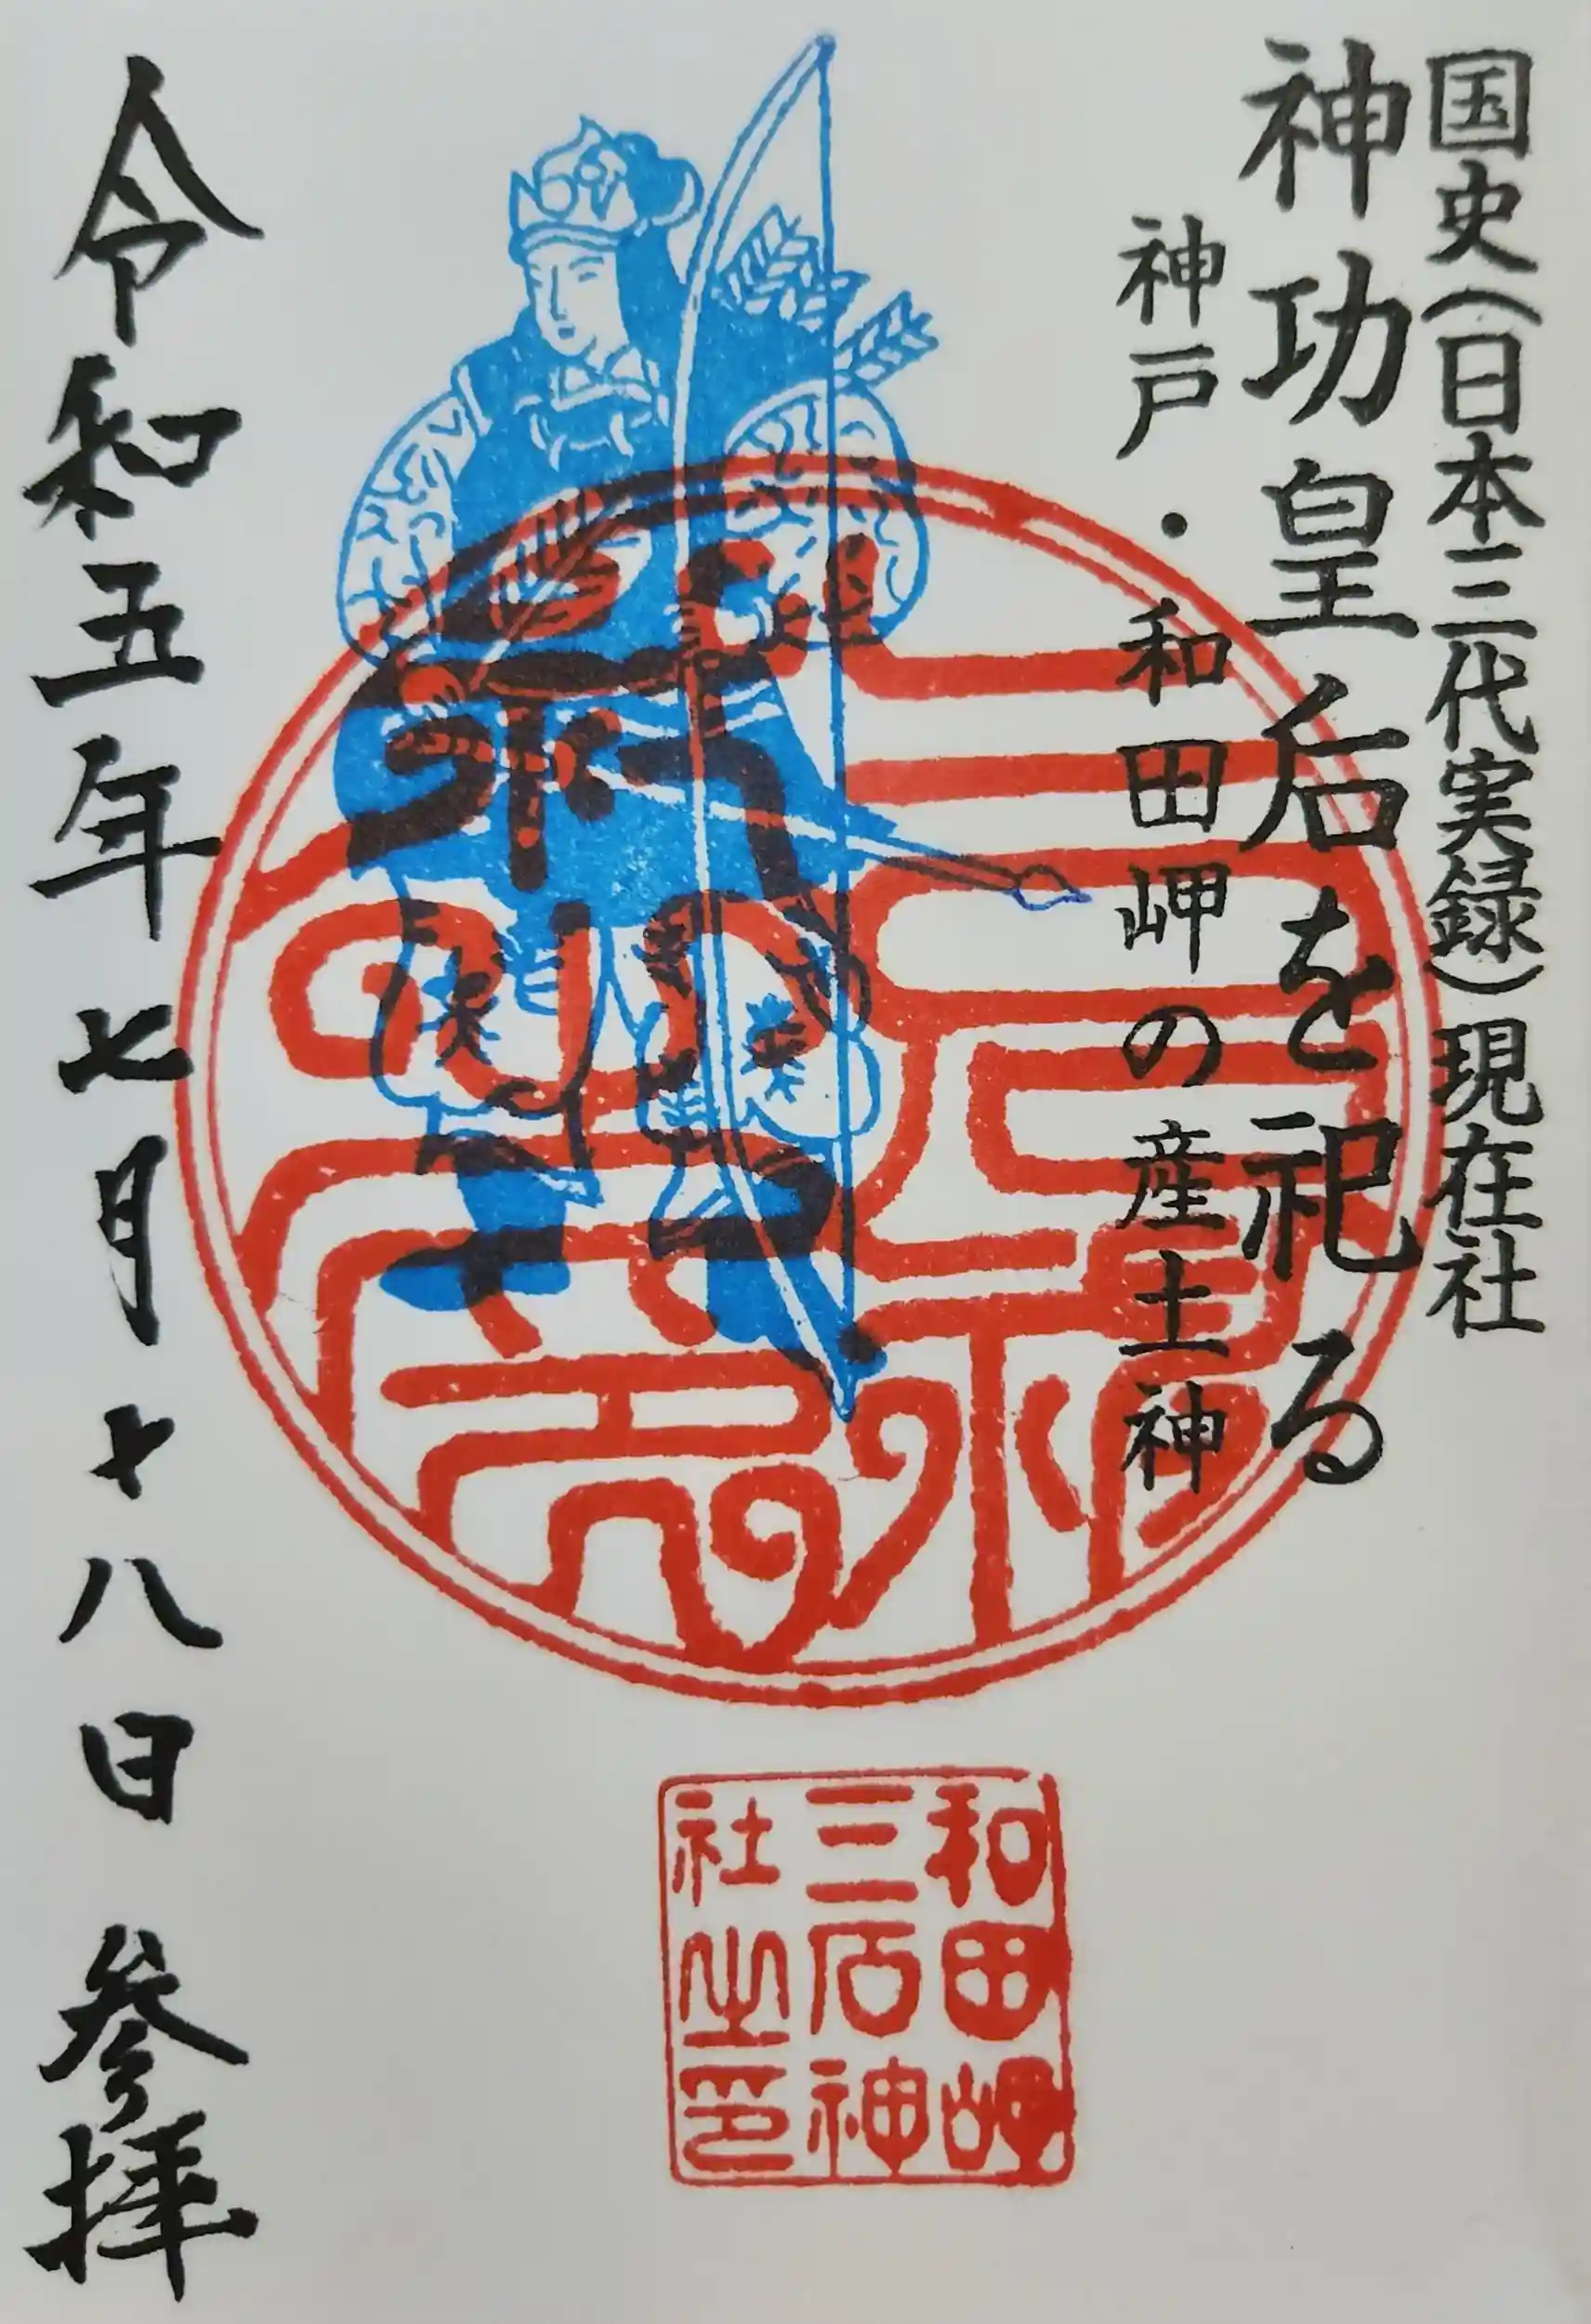 国史(日本三代実録)現在社
神功皇后を祀る
神戸・和田岬の産土神
三石神社
和田岬
三石神
社之印
令和五年七月十八日 参拝